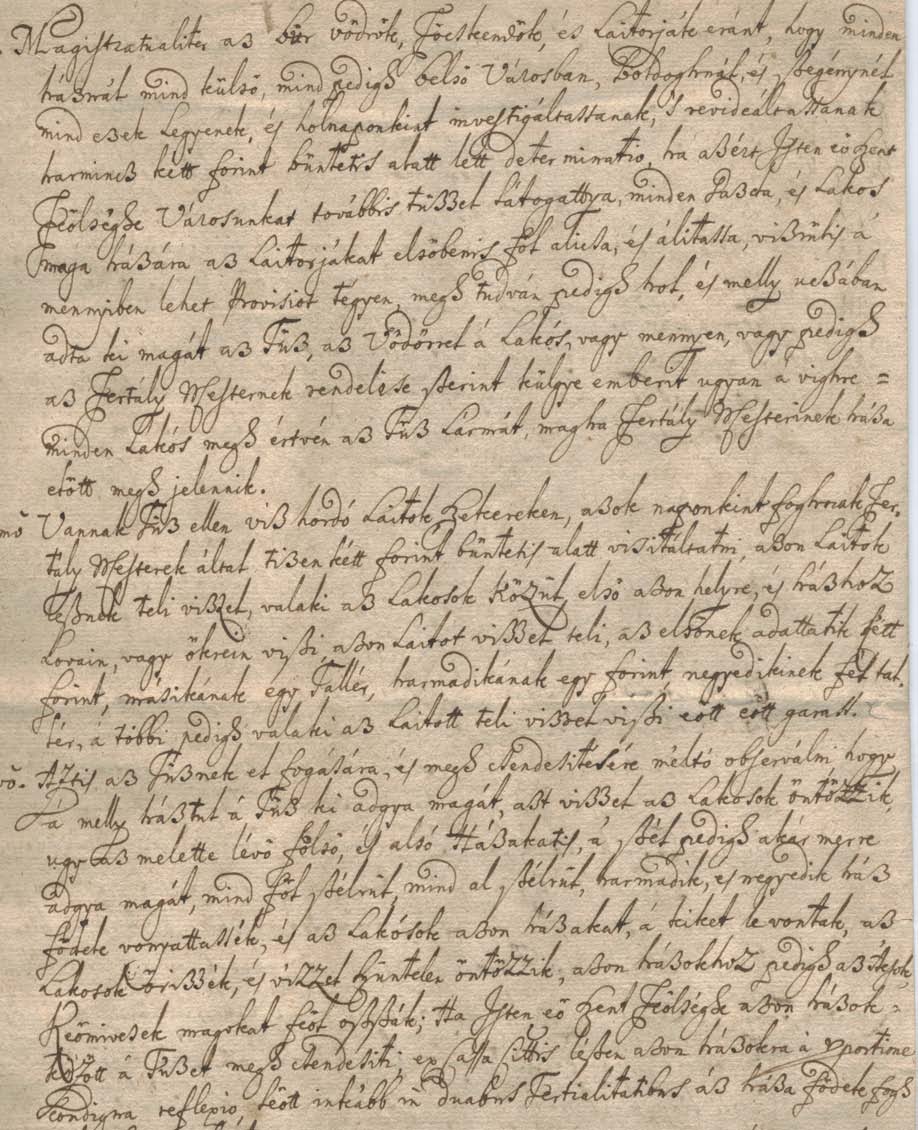 Magistratualiter az bűr vödrök, Föcskendők, és Laitorják eránt, hogy minden
háznál mind külső, mind pedigh belső Városban, Boldoghnál, és szegénynél
mind ezek legyenek, és holnaponkint investigáltassanak, 's revideáltassanak
harmincz kétt forint büntetés alatt lett determinatio, ha azért Isten eő Szent
Feőlséghe Városunkat továbbis tűzzel látogattya, minden Gazda, és Lakos
maga házára az Laitorjákat elsőbenis föl alicsa, és álitassa, vizrűlis á
mennyiben lehet Provisiót tégyen, megh tudván pedigh hol, és melly uczában
adta ki magát az Tűz, az Vödörrel á Lakós, vagy mennyen, vagy pedigh
az Fertály Mesternek rendelése szerint külgye emberit ugyan á vighre =
minden Lakós megh értvén az Tűz Lármát, magha Fertály Mesterinek háza
előtt megh jelennik.
Vannak Tűz ellen viz hordó Laitok Szekereken, azok naponkint foghnak Fer-
tály Mesterek által tizen kétt forint büntetés alatt visitáltatni, azon Laitok
lésznek teli vizzel, valaki az Lakosok közűl, első azon helyre, és házhoz
Lovain, vagy ökrein viszi azon Laitot vizzel teli, az elsőnek adattatik kétt
forint, másikának egy Tallér, harmadikának egy forint negyedikinek fél tal-
lér, á többi pedigh valaki az Laitott teli vizzel viszi eött eött garast.
Aztis az Tűznek el fogására, és megh csendesitésére méltó observálni hogy
á melly háztul á Tűz ki adgya magát, azt vizzel az Lakosok öntözzik,
ugy az melette lévő fölső, és alsó Házakatis, á szél pedigh akár merre
adgya magát, mind föl szélrűl, mind al szélrűl, harmadik, és negyedik ház
födele vonyattassék, és az Lakósok azon házakat, á kiket le vontak, az
Lakosok őrizzék, és vizzel szüntelen öntözzik, azon házokhoz pedigh az Ácsok,
Keőmivesek magokat feől oszszák; Ha Isten eő Szent Feőlséghe azon házok
között á Tüzet megh csendesiti, ex Cassa Civitatis lészen azon házokra á portione
condigna reflexio, seőtt inkább in duabus Tertialitatibus áz háza födele fogh